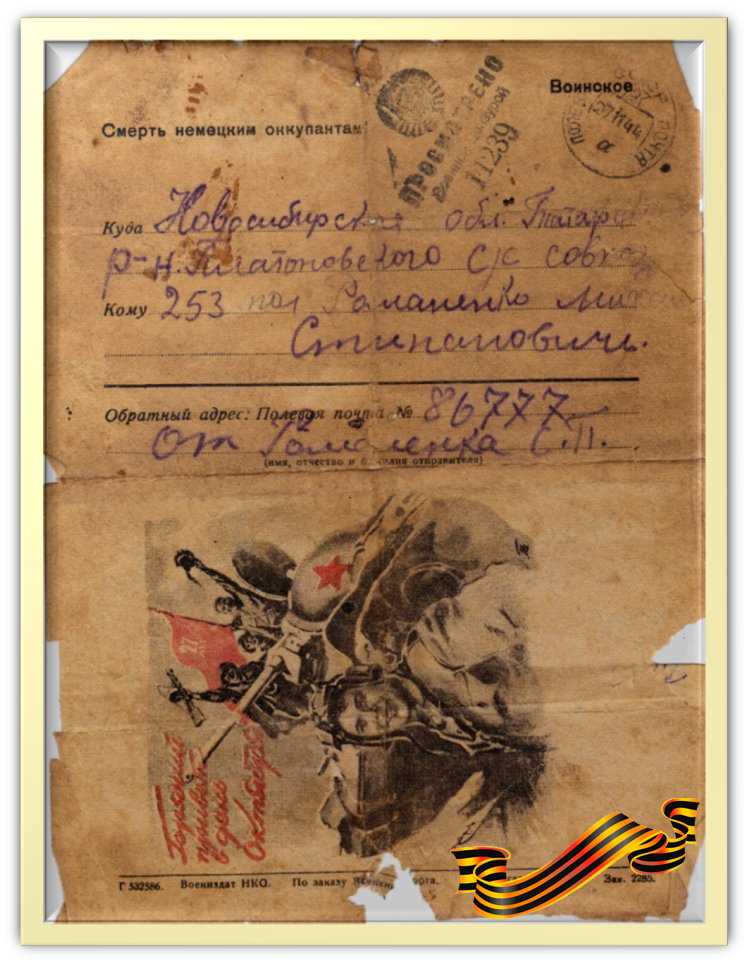 Воинское
Смерть немецким оккупантам!
ПРОСМОТРЕНО
Военной Цензурой
11239
ПОЧТА
27 11 44
а
Куда Новосибирская обл. Татарск
р-н. Платоновского с/с совхоз
Кому 253 пол Романенко Михаил
Стипановичи.
Обратный адрес: Полевая почта № 86777
От Романенка С.П.
(имя, отчество и фамилия отправителя)
27
Горячий
привет
в день
Октября
Г 532586. Воениздат НКО. По заказу Зак. 2285.